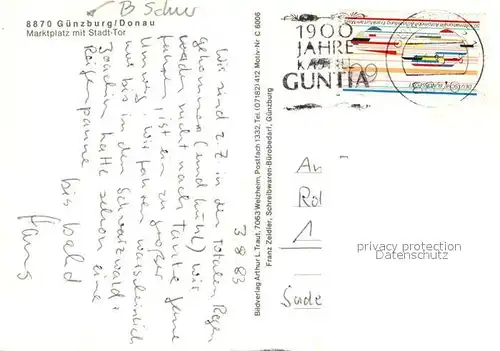 B Schur
8870 Günzburg/Donau
Marktplatz mit Stadt-Tor
3.8.83
Wir sind z.Z. in den totalen Regen
gekommen (und kühl) Wir
werden nicht nach Tante
fahren, ist ein zu großer
Umweg. Wir fahren warscheinlich
nur bis in den Schwarzwald.
Joachim hatte schon eine
Reifenpanne
bis bald
Hans
Bildverlag Arthur L. Traut, 7063 Welzheim, Postfach 1332, Tel. (07182) 412 Mod.-Nr C 6006
Franz Zeidler, Schreibwaren-Bürobedarf, Günzburg
1900
JAHRE
KASTELL
GUNTIA
An
1
Sude
privacy protection
Datenschutz